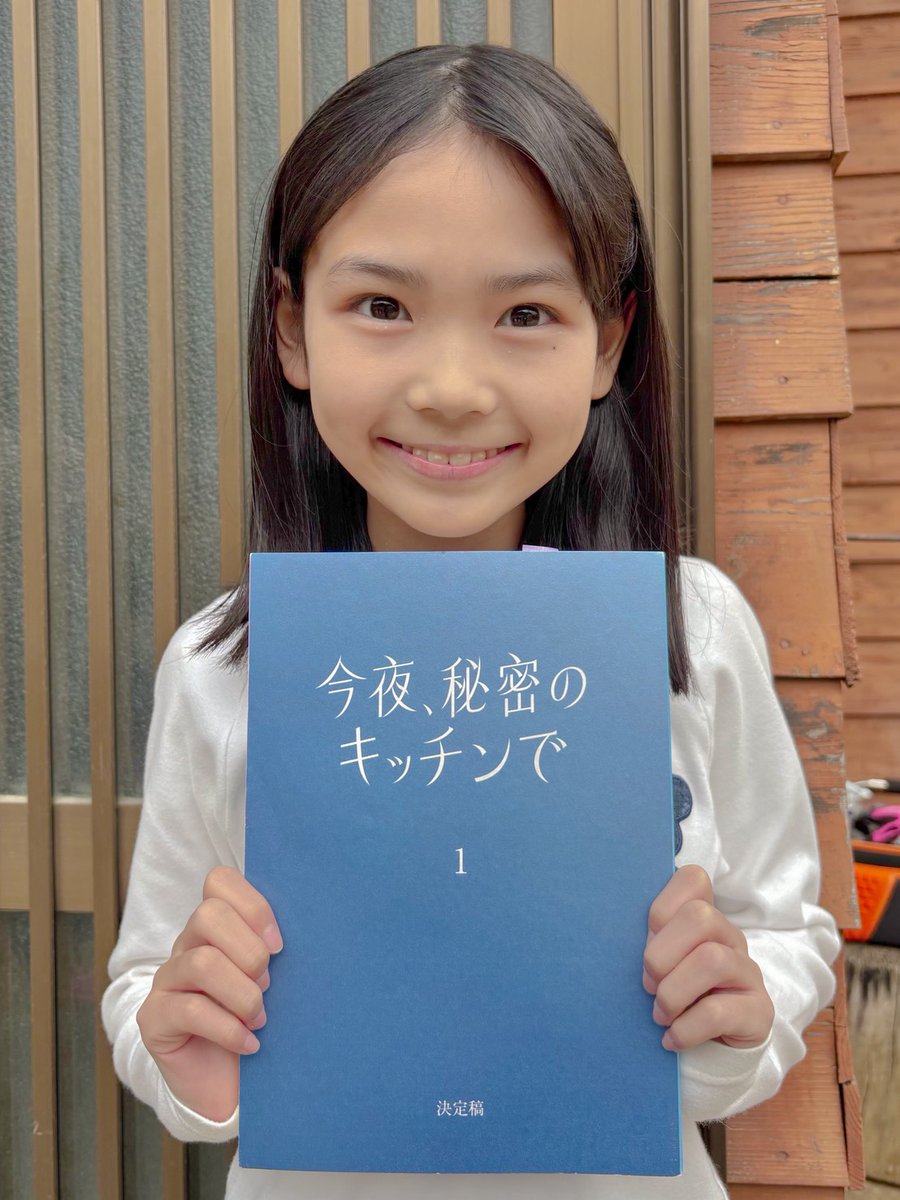 今夜、秘密の
キッチンで
1
決定稿